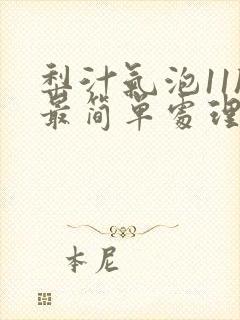 梨汁氣泡11
最简單處理
本尼